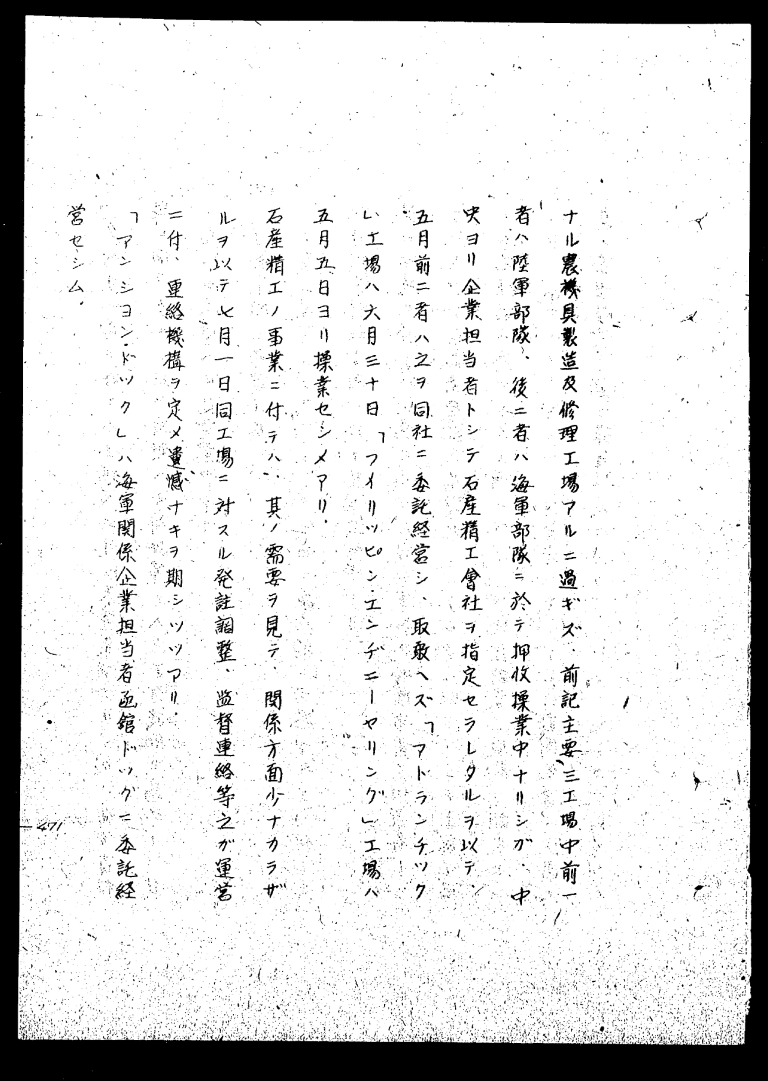 ナル農機具製造及修理工場アルニ過ギズ、前記主要三工場中前一
者ハ陸軍部隊、後二者ハ海軍部隊ニ於テ押收操業中ナリシガ、中
央ヨリ企業担当者トシテ石産精工會社ヲ指定セラレタルヲ以テ、
五月前二者ハ之ヲ同社ニ委託経営シ、取敢ヘズ「アトランチック
」工場ハ六月三十日「フイリッピン・エンヂニーヤリング」工場ハ
五月五日ヨリ操業セシメアリ。
石産精工ノ事業ニ付テハ、其ノ需要ヲ見テ、関係方面少ナカラザ
ルヲ以テ七月一日同工場ニ対スル発註調整、監督連絡等之ガ運営
ニ付、連絡機構ヲ定メ遺憾ナキヲ期シツツアリ。
「アンション・ドック」ハ海軍関係企業担当者函館ドックニ委託経
営セシム。
471